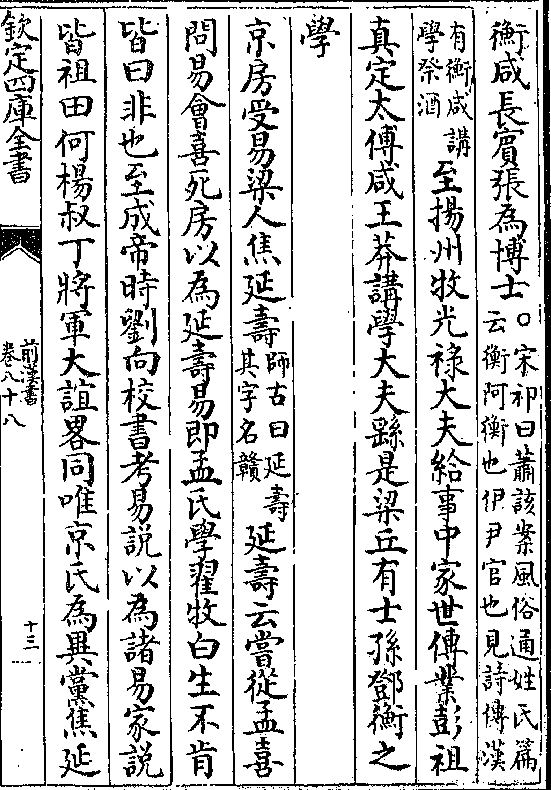 衡咸長賔張為博士○宋祁曰蕭該案風俗通姓氏篇云衡阿衡也伊尹官也見詩傳漢
有衡咸講學祭酒至揚州牧光祿大夫給事中家世傳業彭祖
真定太傅咸王莽講學大夫繇是梁丘有士孫鄧衡之
學
京房受易梁人焦延壽師古曰延壽其字名贛延壽云嘗從孟喜
問易會喜死房以為延壽易即孟氏學翟牧白生不肯
皆曰非也至成帝時劉向校書考易說以為諸易家說
皆祖田何楊叔丁將軍大誼畧同唯京氏為異黨焦延
欽定四庫全書
前漢書
卷八十八
十三